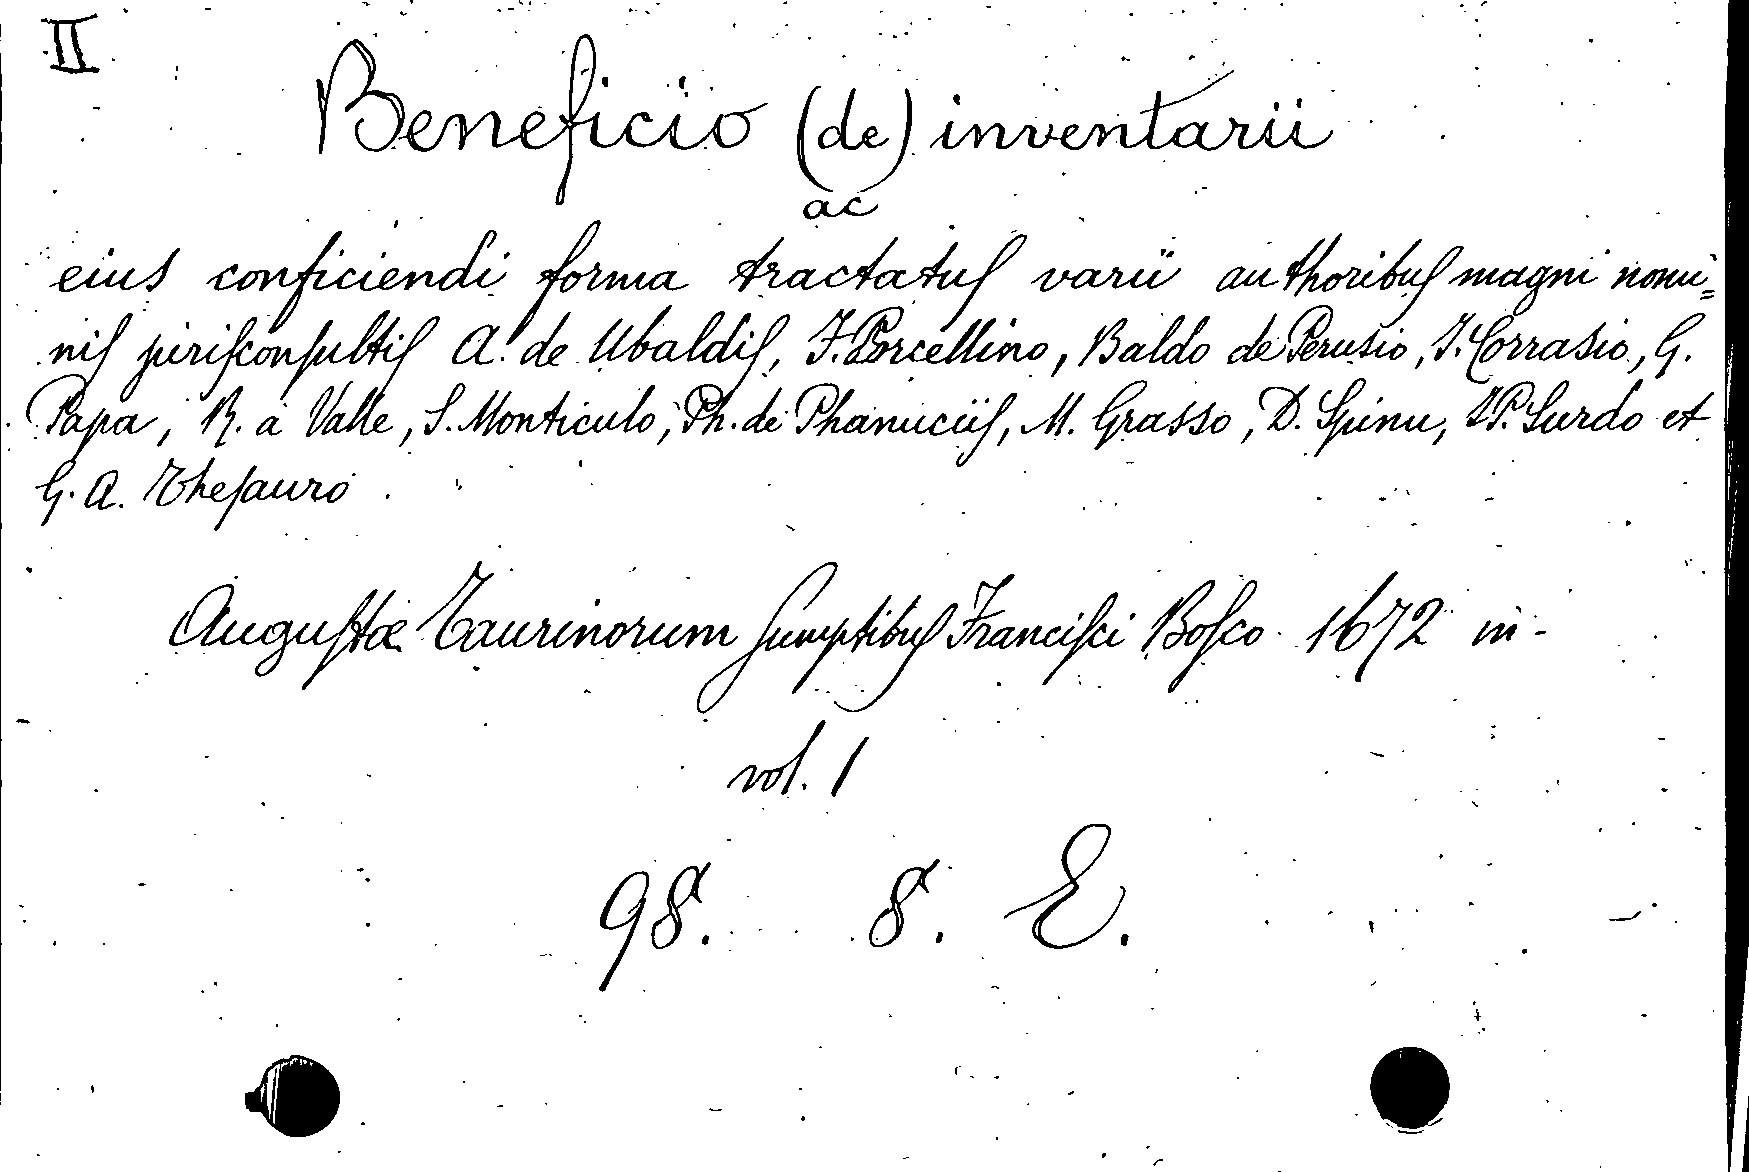 II
Beneficio (de) inventarii
ac
eius conficiendi forma tractatuſ varii authoribuſ magni nomi=
niſ juriſconſultiſ A. de Ubaldiſ, F. Porcellino, Baldo de Perusio, J. Corrasio, G.
Papa, R. a Valle, S. Monticulo, Ph. de Phanuciiſ, M. Grasso, D. Spinu, J.P. Surdo et
G. A. Theſauro.
Auguſtæ Taurinorum ſumptibuſ Franciſci Boſco 1672 in-
vol. 1
98. 8. E.